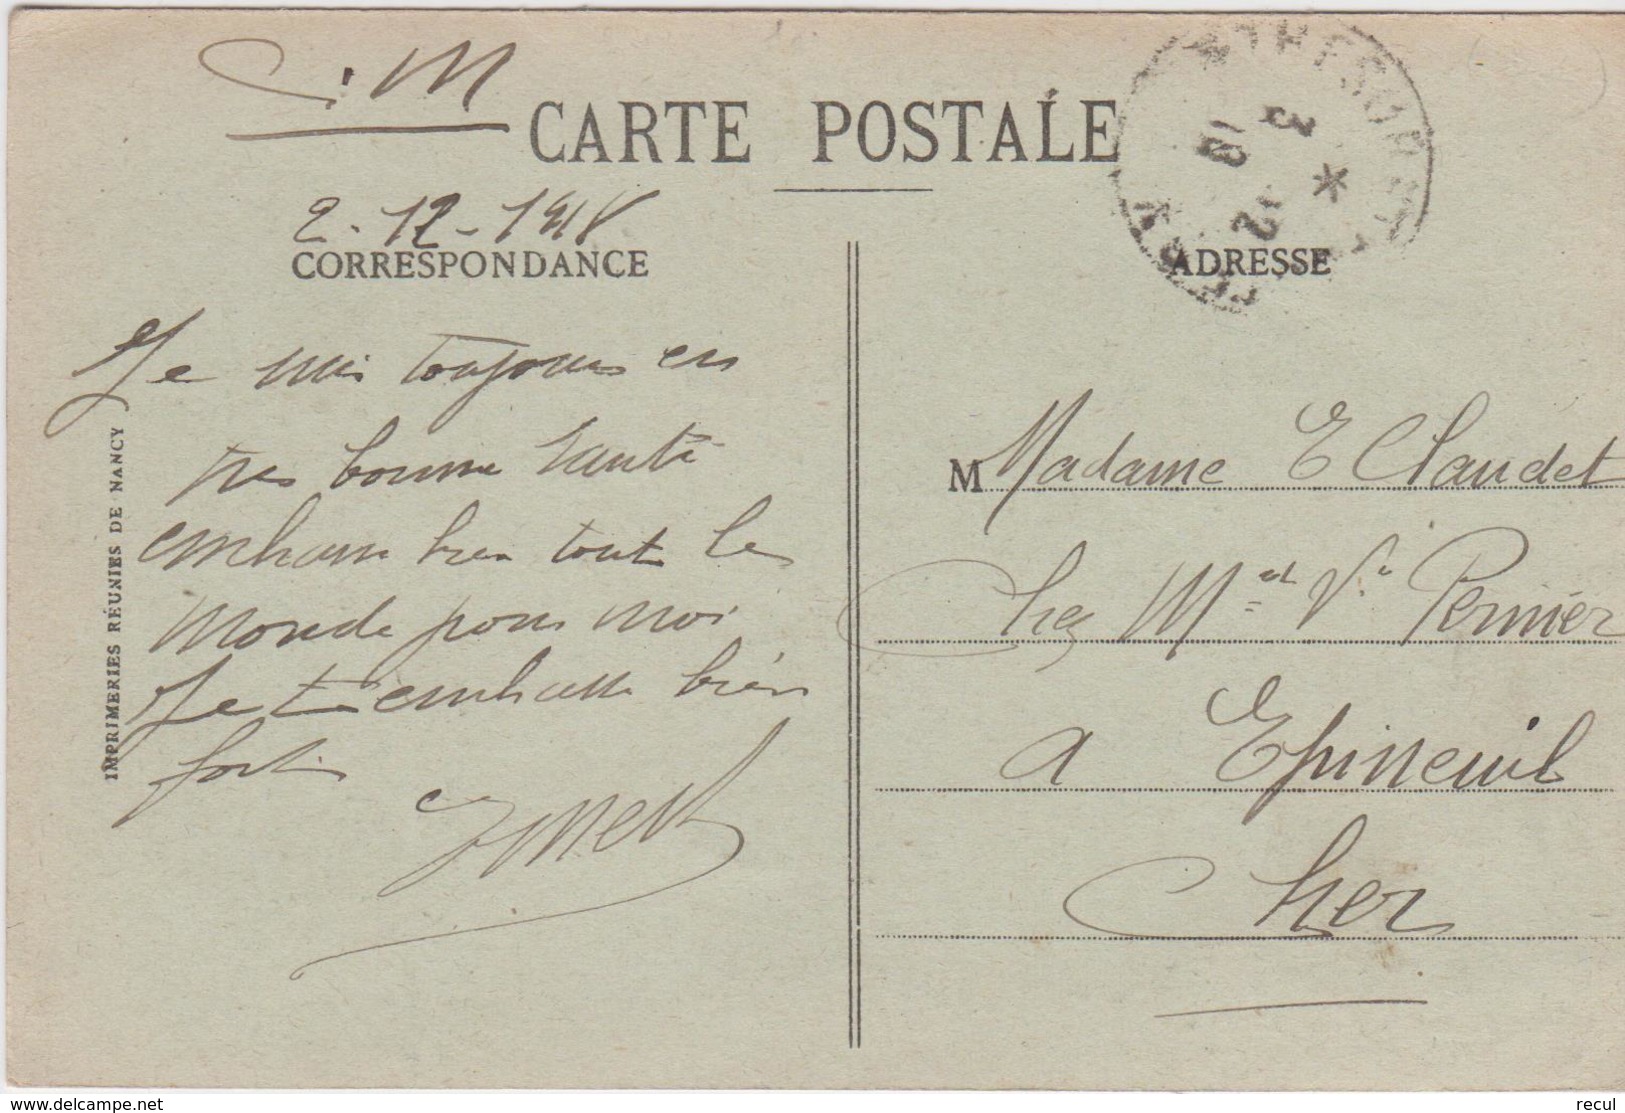 C.M
CARTE POSTALE
3
12
18
2-12-1918
CORRESPONDANCE
ADRESSE
Je suis toujours en
tres bonne santé
embrasse bien tout le
monde pour moi
Je t'embrasse bien
fort
M Madame E Claudet
Chez M Ve Perrier
a Epineuil
Cher
IMPRIMERIES RÉUNIES DE NANCY
www.delcampe.net
recul